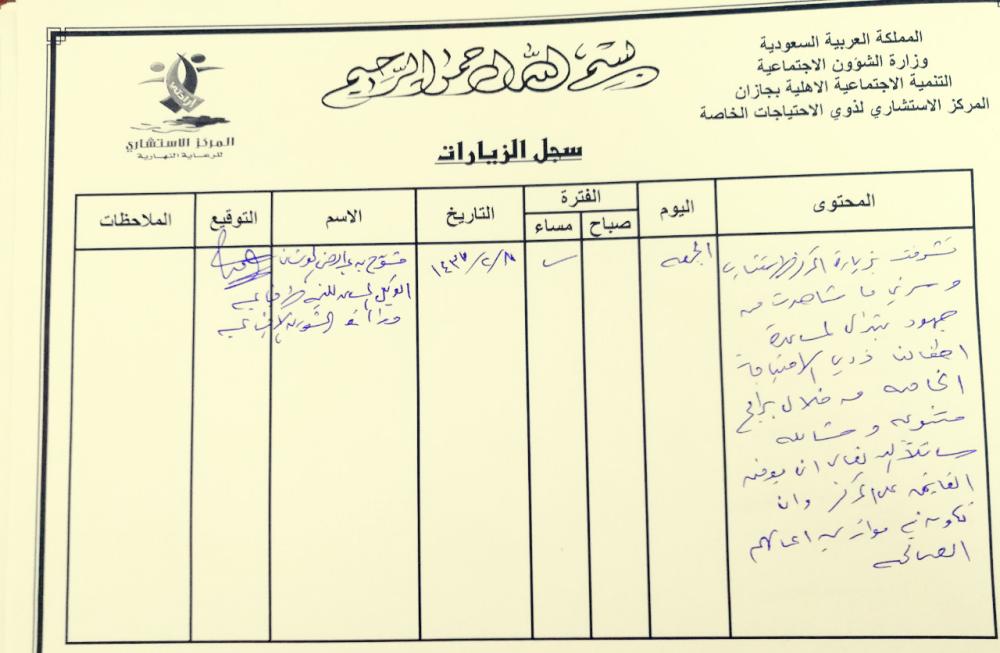 المملكة العربية السعودية
وزارة الشؤون الاجتماعية
التنمية الاجتماعية الاهلية بجازان
المركز الاستشاري لذوي الاحتياجات الخاصة
بسم الله الرحمن الرحيم
إرادتنا
المركز الاستشاري
للرعاية النهارية
سجل الزيارات
المحتوى
اليوم
الفترة
صباح
مساء
التاريخ
الاسم
التوقيع
الملاحظات
تشرفت بزيارة المركز الاستشاري
وسرني ما شاهدت من
جهود تبذل لمساعدة
اطفالنا ذوي الاحتياجات
الخاصه من خلال برامج
متنوعه وشامله
سائلا الله تعالى ان يوفق
القايمين على المركز وان
تكون في موازين اعمالهم
الصالحه
الجمعه
الوكيل المساعد للتنمية الاجتماعية
وزارة الشئون الاجتماعيه